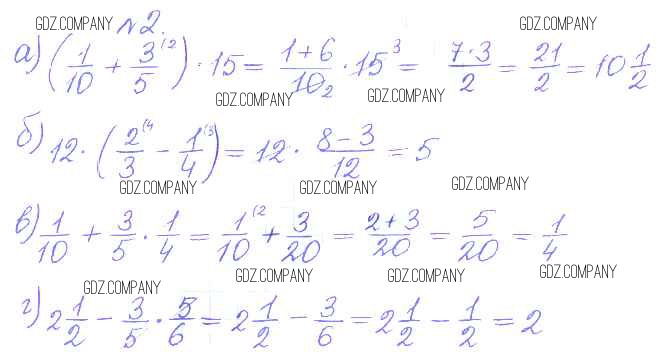 GDZ.COMPANY №2. GDZ.COMPANY
а) (1/10 + 3/5 (2) · 15 = (1+6)/10 2 · 15 3 = (7·3)/2 = 21/2 = 10 1/2
GDZ.COMPANY GDZ.COMPANY
б) 12 · (2/3 (4 − 1/4 (3) = 12 · (8−3)/12 = 5
GDZ.COMPANY GDZ.COMPANY GDZ.COMPANY
в) 1/10 + 3/5 · 1/4 = 1/10 (2 + 3/20 = (2+3)/20 = 5/20 = 1/4
GDZ.COMPANY GDZ.COMPANY GDZ.COMPANY GDZ.COMPANY
г) 2 1/2 − 3/5 · 5/6 = 2 1/2 − 3/6 = 2 1/2 − 1/2 = 2